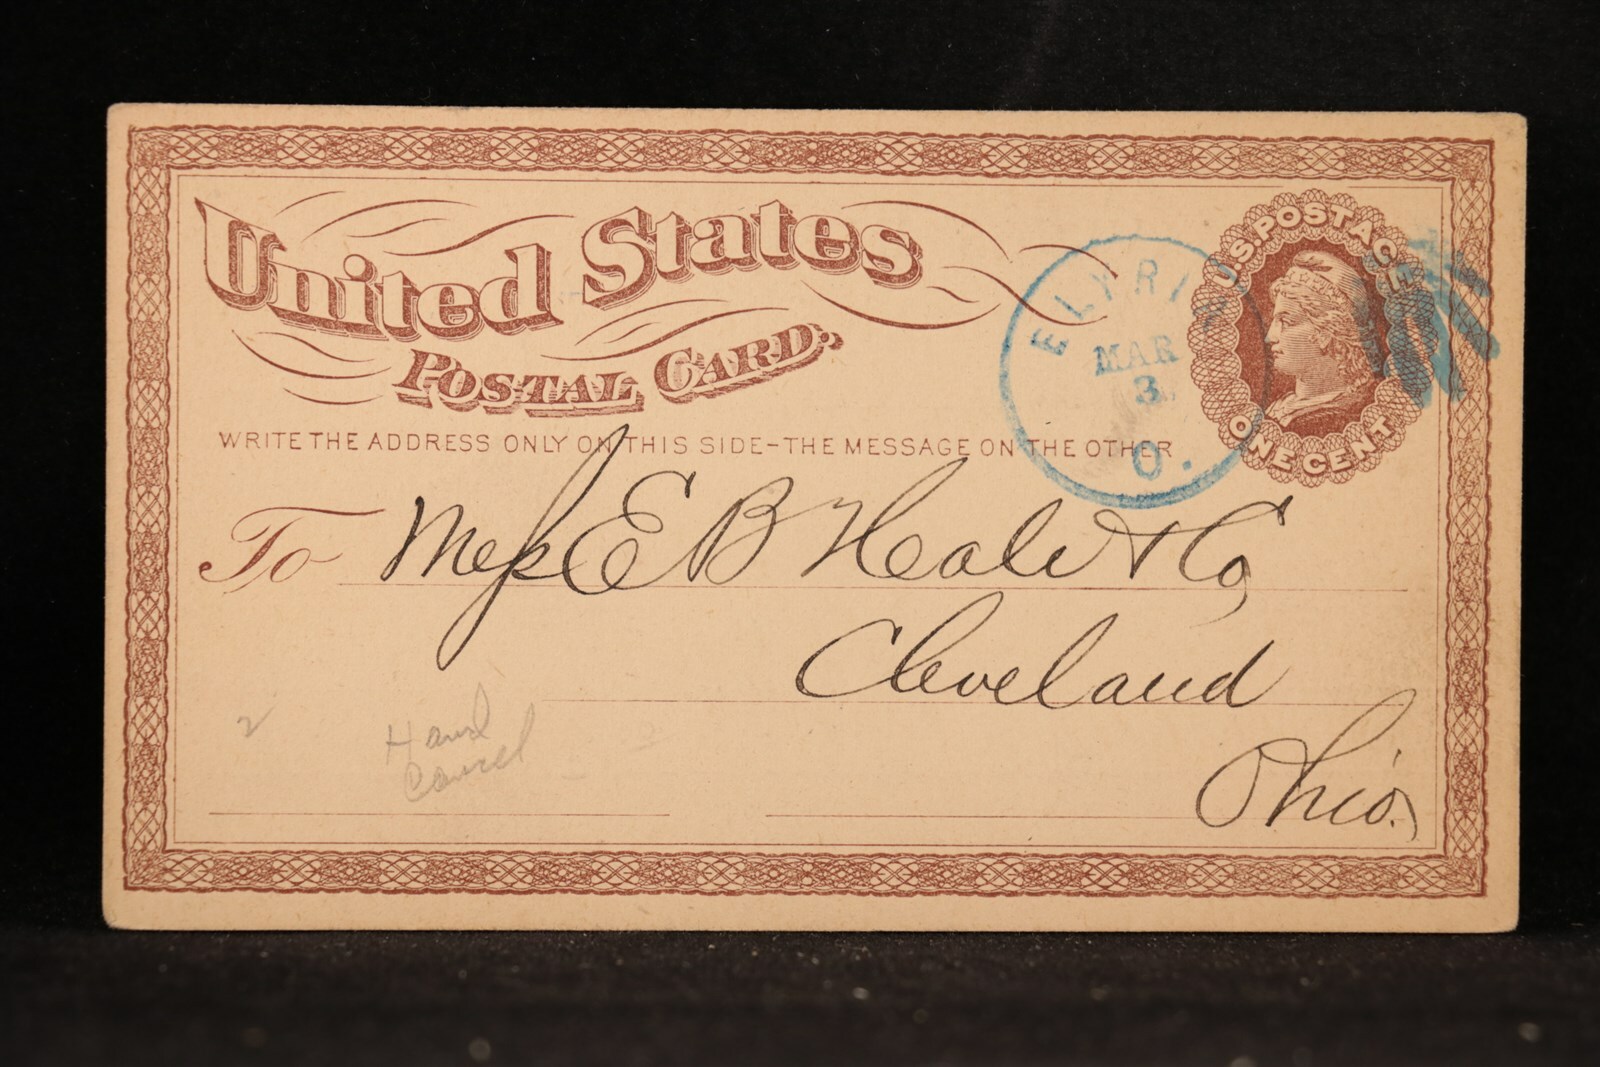 United States
Postal Card.
WRITE THE ADDRESS ONLY ON THIS SIDE-THE MESSAGE ON THE OTHER
U.S. POSTAGE
ONE CENT
ELYRIA
MAR
3
O.
To Mess E B Heale & Co
Cleveland
Ohio.
2
Hand
Cancel